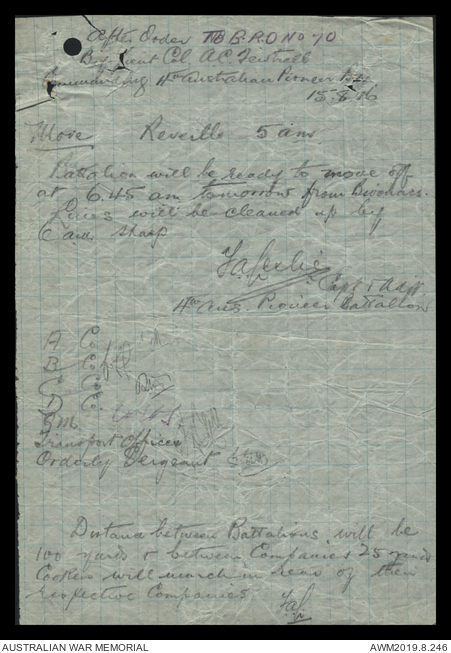 After Order To B.R.O No 70
By Lieut Col. A.C. Fewtrell
Commanding 4th Australian Pioneer Btn
15.8.16
Move Reveille 5 am.
Battalion will be ready to move off
at 6.45 am tomorrow from Bivouacs.
Lines will be cleaned up by
6 am sharp
Capt & Adjt
4th Aus. Pioneer Battalion
A Co.
B Co.
C Co.
D Co.
Q.M.
Transport Officer
Orderly Sergeant
Distance between Battalions will be
100 yards & between Companies 25 yards
Cookers will march in rear of their
respective Companies
AUSTRALIAN WAR MEMORIAL
AWM2019.8.246